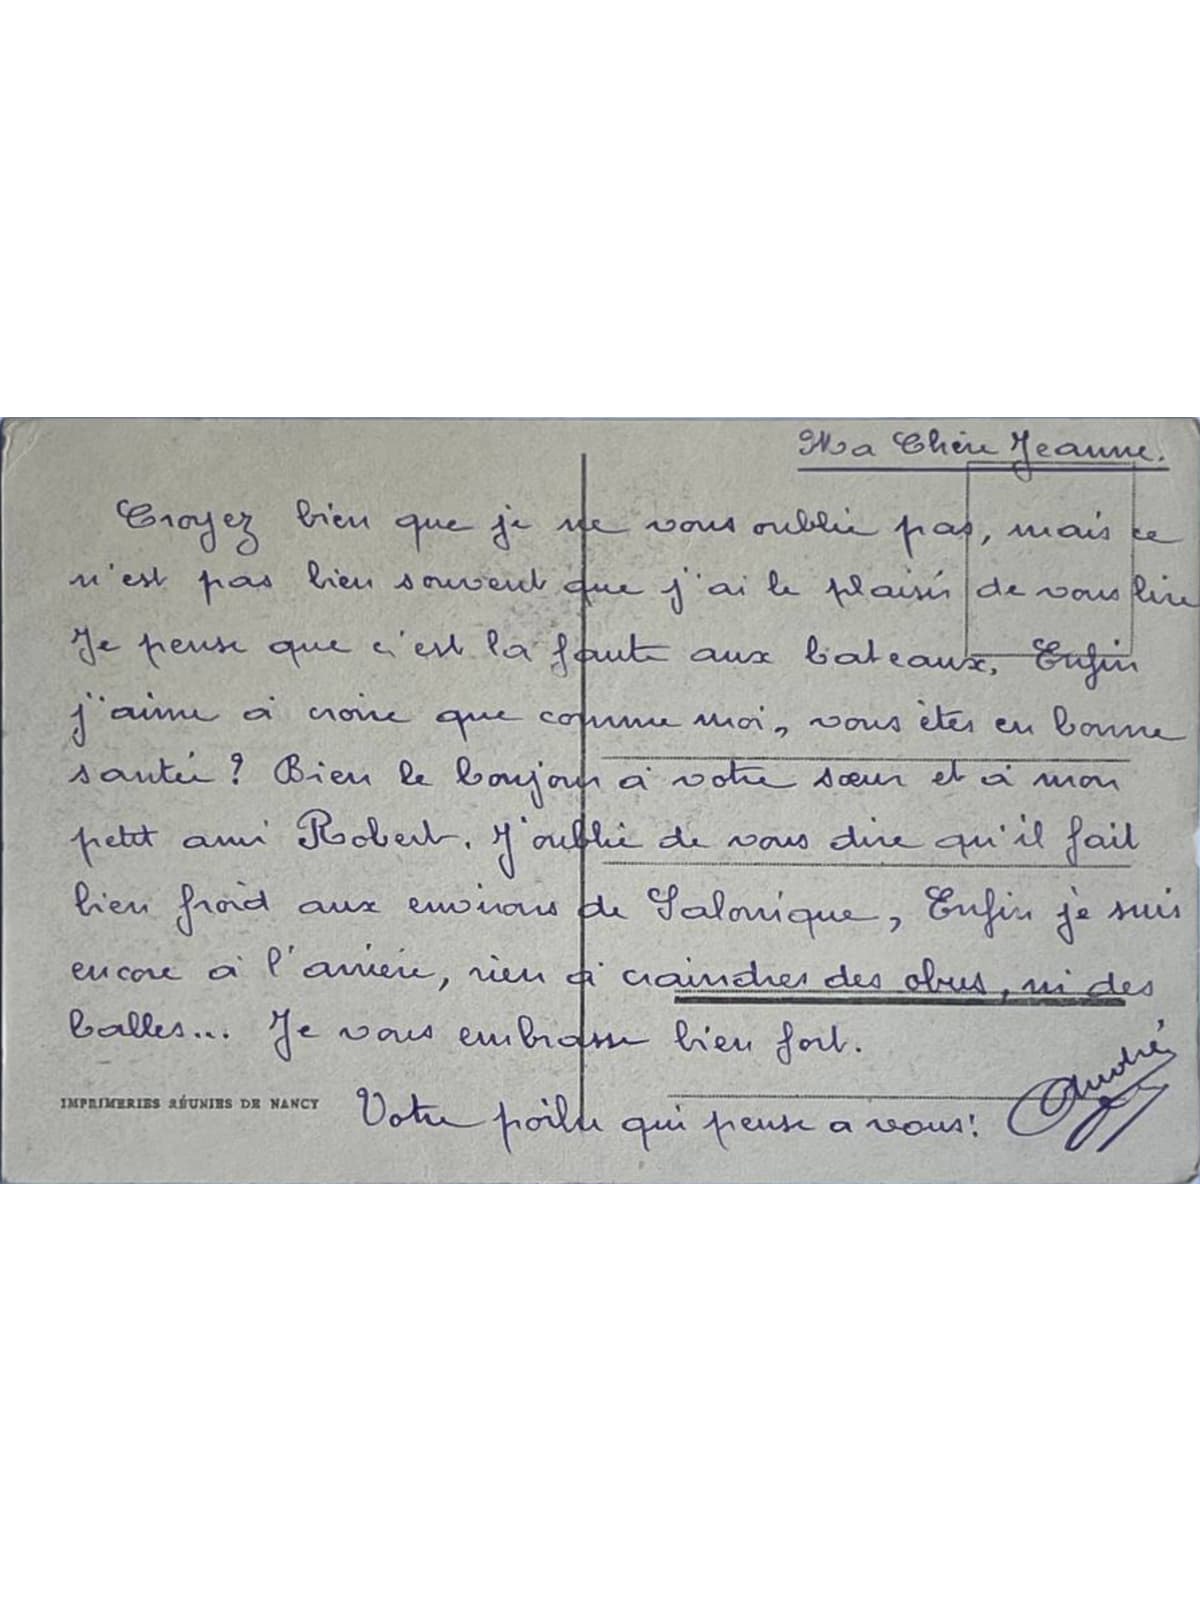 Ma Chère Jeanne.
Croyez bien que je ne vous oublie pas, mais ce
n'est pas bien souvent que j'ai le plaisir de vous lire
Je pense que c'est la faute aux bateaux. Enfin
j'aime à croire que comme moi, vous êtes en bonne
santée ? Bien le bonjour à votre sœur et à mon
petit ami Robert. J'oublie de vous dire qu'il fait
bien froid aux environs de Salonique, Enfin je suis
encore à l'arrière, rien à craindres des obus, ni des
balles... Je vous embrasse bien fort.
Votre poilu qui pense a vous!
André
IMPRIMERIES RÉUNIES DE NANCY